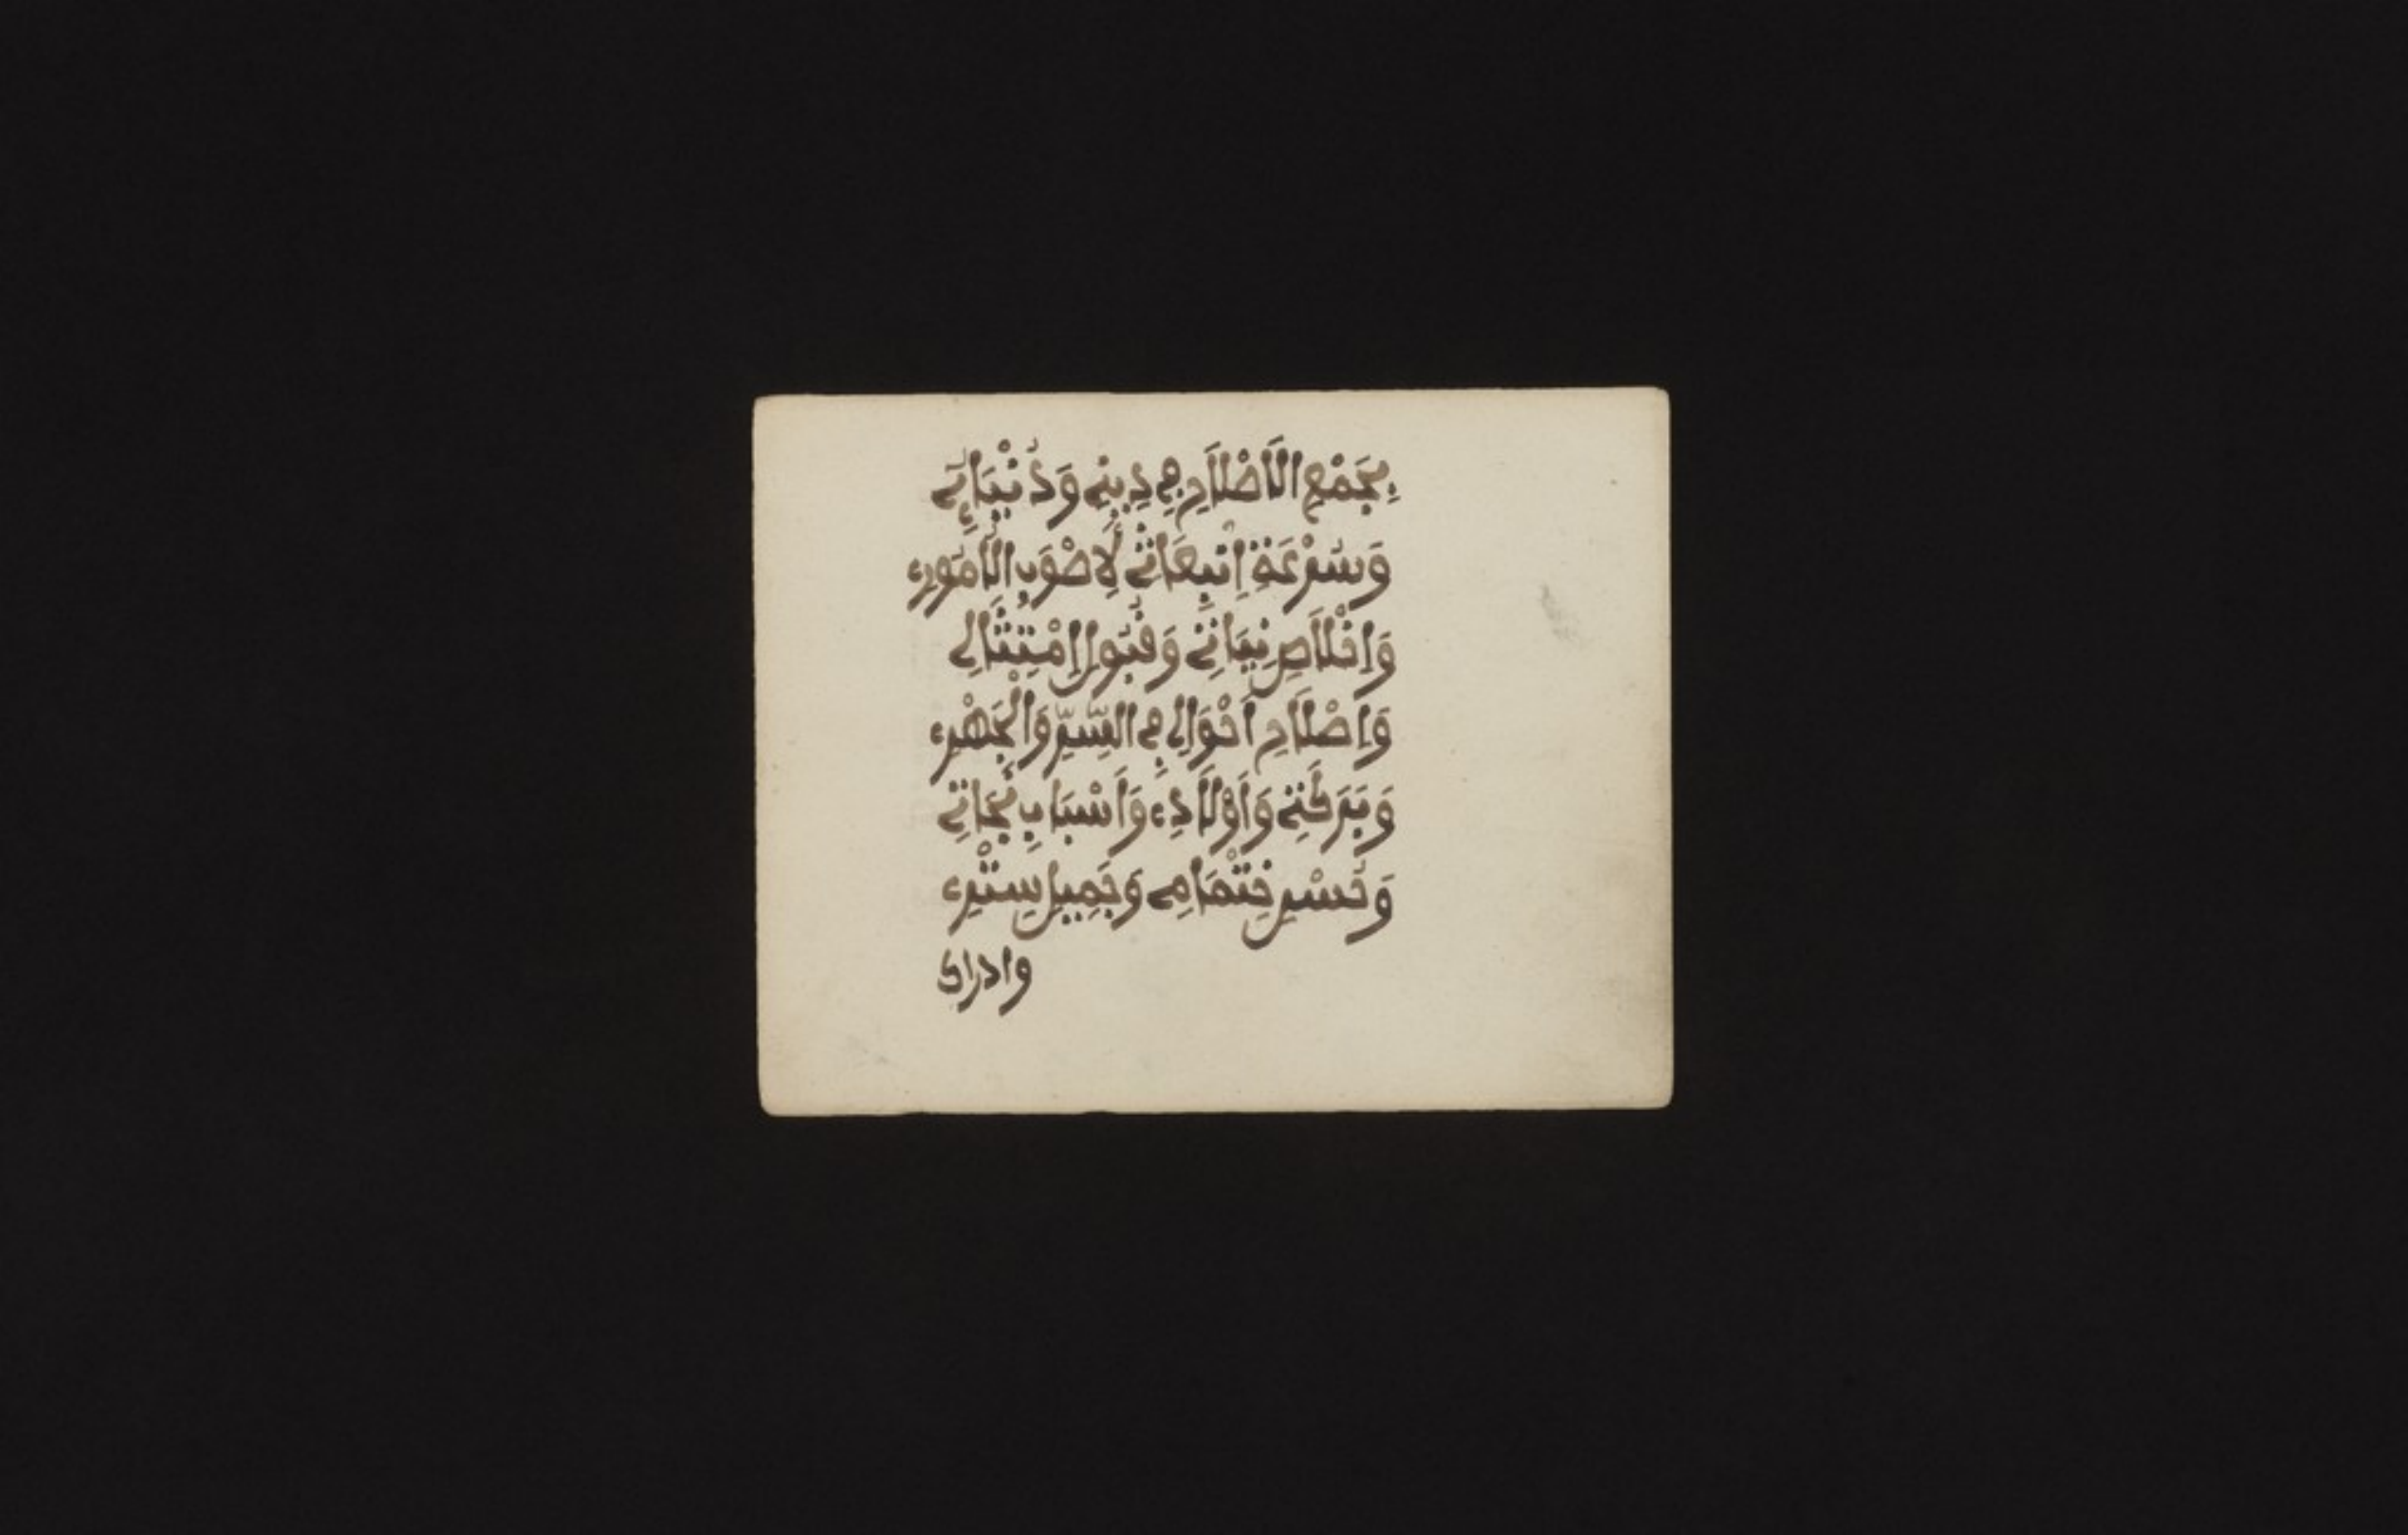 بِجَمْعِ الَاصْلَاحِ فِے دِينِے وَدُنْيَاءِى
وَسُرْعَةِ اِنْبِعَاثِے لِاَصْوَبِ الُامُورِ
وَاِخْلَاصِ نِيَاتِے وَقُبُولِ اِمْتِثَالِى
وَاِصْلَاحِ اَحْوَالِى فِے السِّرِّ وَالْجَهْرِ
وَبَرَكَتِے وَاَوْلَادِے وَاَسْبَابِ نَجَاتِے
وَحُسْنِ خِتْمَامِے وَجَمِيلِ سِتْرِے
وادراك